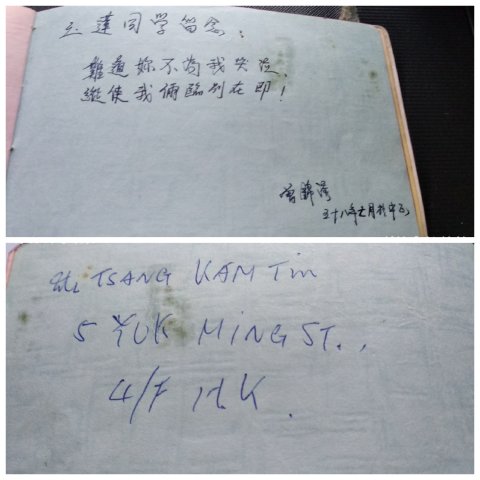 玉蓮同学留念：
難道妳不為我哭泣，
縱使我倆臨別在即！
曾錦
五十八年七月於中五
TSANG KAM Tin
5 YUK MING ST.,
4/F H.K.